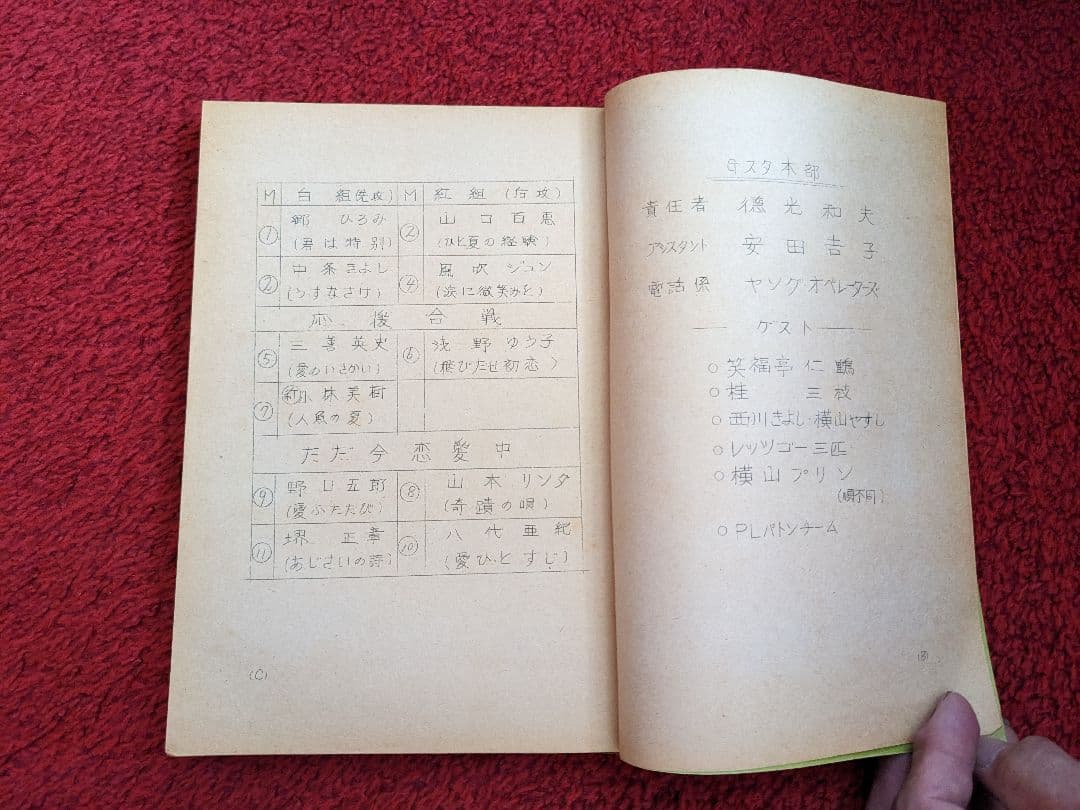 Gスタ本部
責任者 德光和夫
アシスタント 安田吉子
電話係 ヤング・オペレーターズ
ゲスト
○笑福亭仁鶴
○桂 三枝
○西川きよし・横山やすし
○レッツゴー三匹
○横山プリン
(順不同)
○PLバトンチーム
(B)
M 白組(先攻) M 紅組(后攻)
① 郷ひろみ ② 山口百恵
(君は特別) (ひと夏の経験)
② 中条きよし ④ 風吹ジュン
(うすなさけ) (涙に微笑みを)
応援合戦
⑤ 三善英史 ⑥ 浅野ゆう子
(愛のいさかい) (飛びだせ初恋)
⑦ 新小林美樹
(人魚の夏)
ただ今恋愛中
⑨ 野口五郎 ⑧ 山本リンダ
(愛ふたたび) (奇蹟の唄)
⑪ 堺正章 ⑩ 八代亜紀
(あじさいの詩) (愛ひとすじ)
(C)